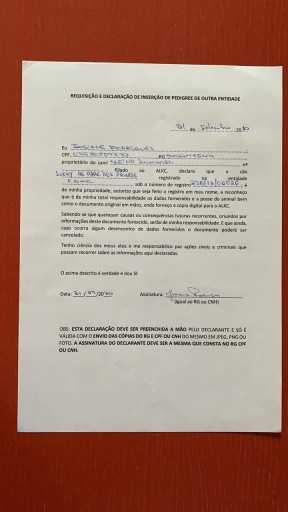 REQUISIÇÃO E DECLARAÇÃO DE INSERÇÃO DE PEDIGREE DE OUTRA ENTIDADE
21 de Setembro 2020
Eu JOSIANE RODRIGUES
CPF RG
proprietário do cão filiado ao ALKC, declaro que o cão
registrado na entidade
sob o número do registro , é
de minha propriedade, autorizo que seja feito a registro em meu nome, e reconheço
que é de minha total responsabilidade os dados fornecidos e a posse do animal bem
como o documento original em mãos, onde forneço a cópia digital para o ALKC.
Sabendo-se que quaisquer causas ou consequências futuras recorrentes, oriundos por
informações deste documento fornecido, serão de minha responsabilidade. E que ainda,
caso ocorra algum desencontro de dados fornecidos o documento poderá ser
cancelado.
Tenho ciência dos meus atos e me responsabilizo por ações cíveis e criminais que
possam recorrer sobre as informações aqui declaradas.
O acima descrito é verdade e dou fé
Data: 21/09/2020 Assinatura:
(Igual ao RG ou CNH)
OBS: ESTA DECLARAÇÃO DEVE SER PREENCHIDA A MÃO PELO DECLARANTE E SÓ É
VÁLIDA COM O ENVIO DAS CÓPIAS DO RG E CPF OU CNH DO MESMO EM JPEG, PNG OU
FOTO. A ASSINATURA DO DECLARANTE DEVE SER A MESMA QUE CONSTA NO RG CPF
OU CNH.